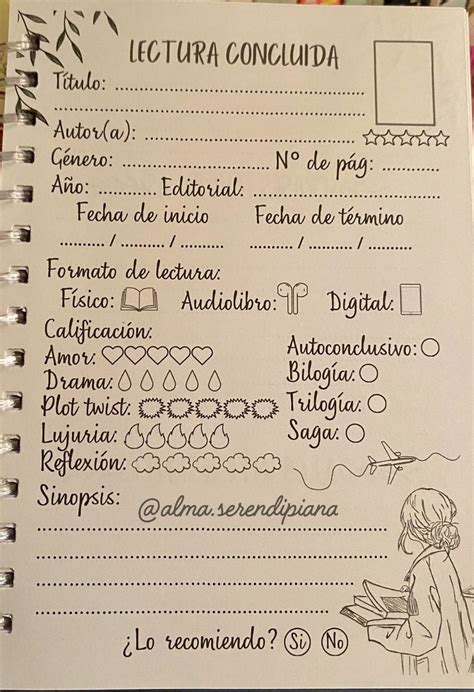 LECTURA CONCLUIDA
Título:
Autor(a):
Género: Nº de pág:
Año: Editorial:
Fecha de inicio Fecha de término
/ / / /
Formato de lectura:
Físico: Audiolibro: Digital:
Calificación:
Amor:
Drama:
Plot twist:
Lujuria:
Reflexión:
Autoconclusivo:
Bilogía:
Trilogía:
Saga:
Sinopsis:
@alma.serendipiana
¿Lo recomiendo? Si No